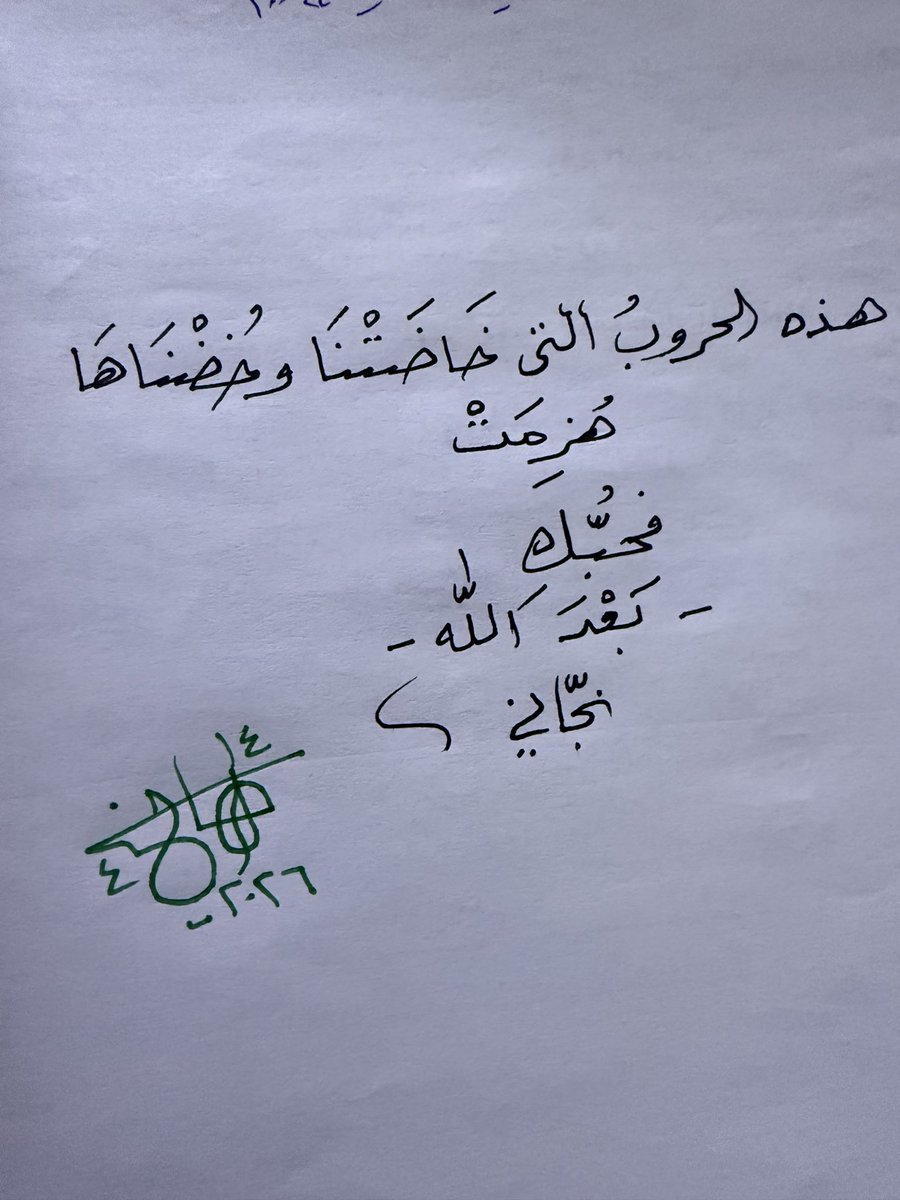 هذه الحروبُ ألّتي خَاضَتْنَا وخُضْنَاهَا
هُزِمَتْ
فحُبُّك
- بَعْدَ اَللّٰه -
نجّاني
٤
٤
٢٠٢٦